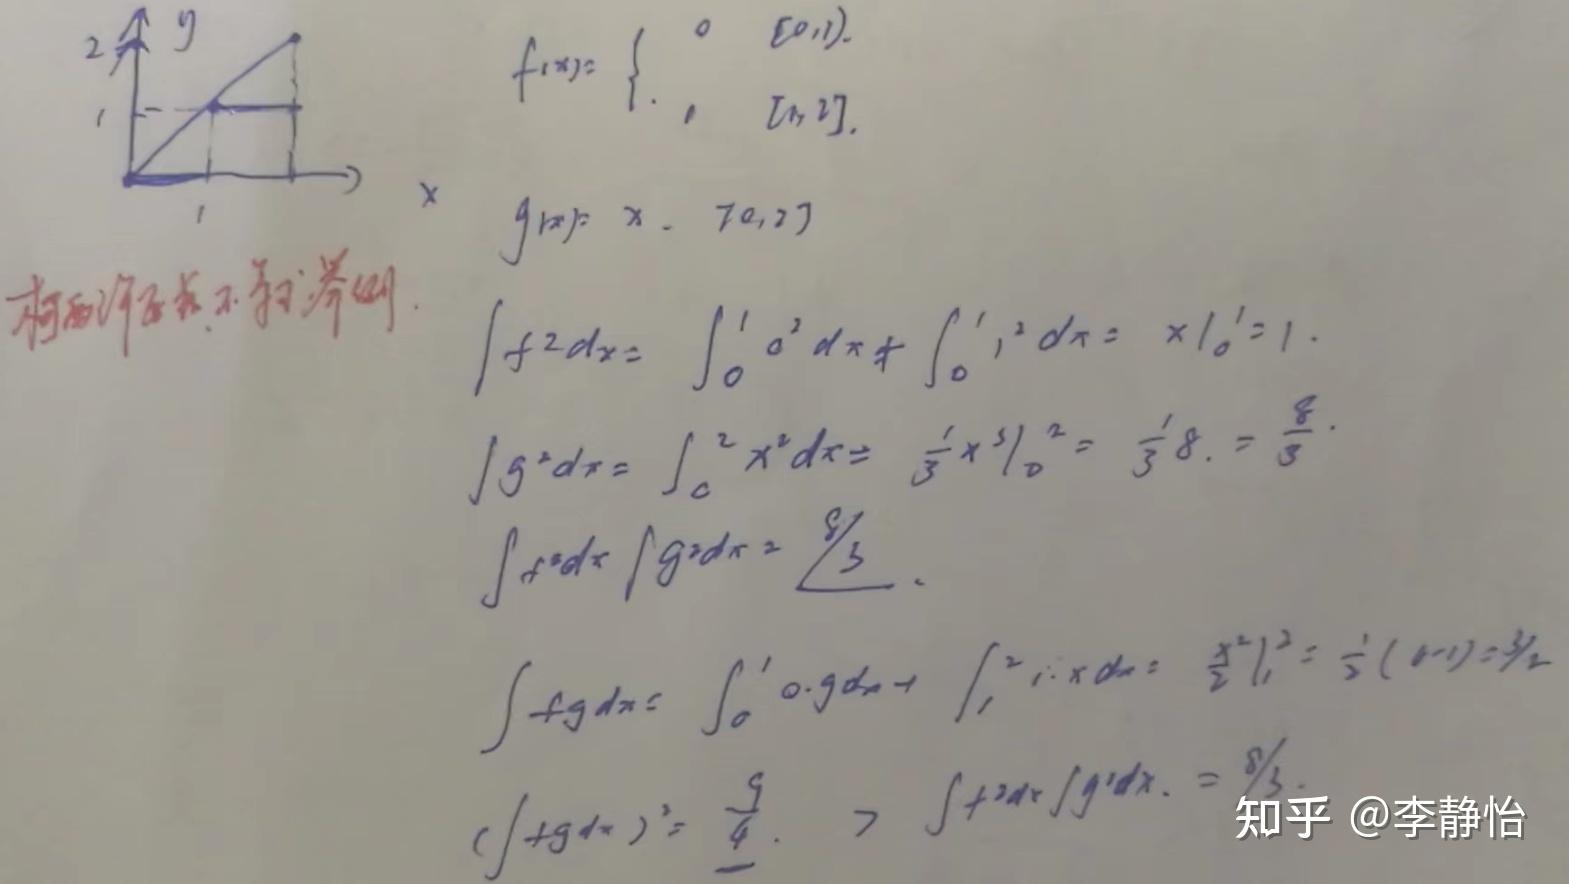 2 y
1
1
x
f(x)= { 0 [0,1).
1 [1,2].
g(x)= x. [0,2]
柯西许瓦兹不等式举例.
∫f²dx= ∫₀¹ 0²dx + ∫₀¹ 1²dx = x|₀¹ = 1.
∫g²dx = ∫₀² x²dx = 1/3 x³|₀² = 1/3 8. = 8/3.
∫f²dx ∫g²dx = 8/3.
∫fgdx = ∫₀¹ 0·gdx + ∫₁² 1·xdx = x²/2|₁² = 1/2(4-1) = 3/2
(∫fgdx)² = 9/4. > ∫f²dx ∫g²dx. = 8/3.
知乎 @李静怡